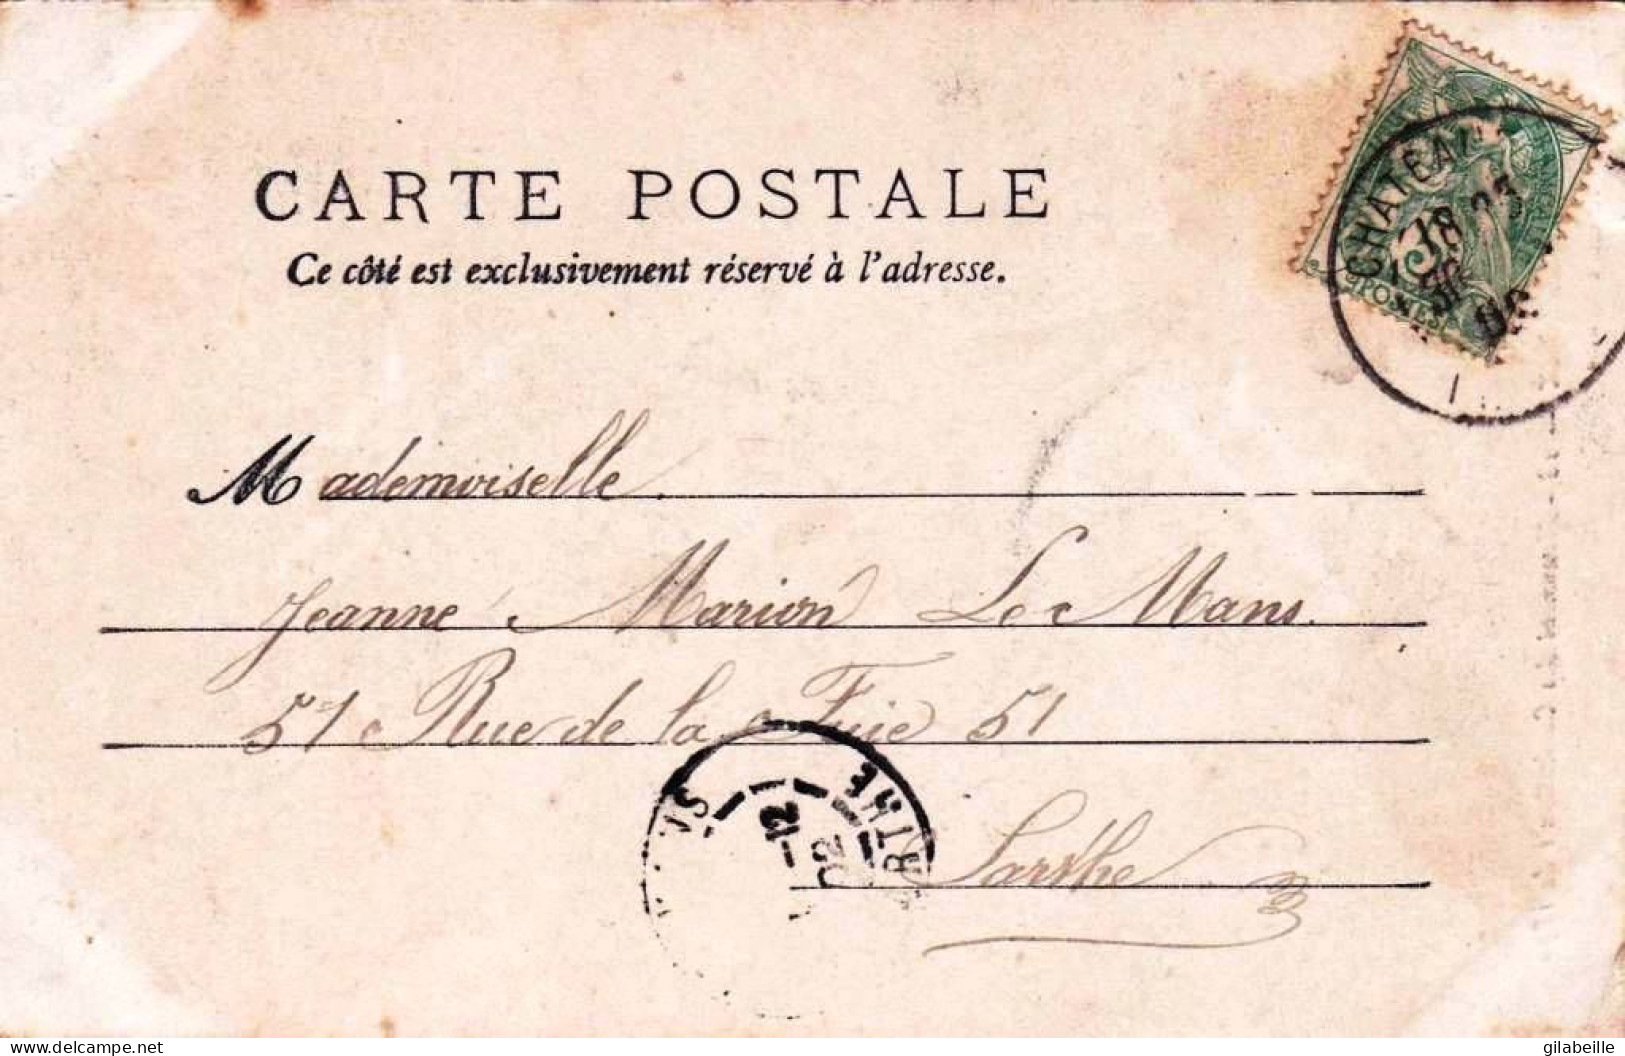 CARTE POSTALE
Ce côté est exclusivement réservé à l'adresse.
CHATEAU
18
5
POSTES
Mademoiselle
Jeanne Marion Le Mans.
51 Rue de la Fuie 51
SARTHE
12
Sarthe
delcampe.net
gilabeille